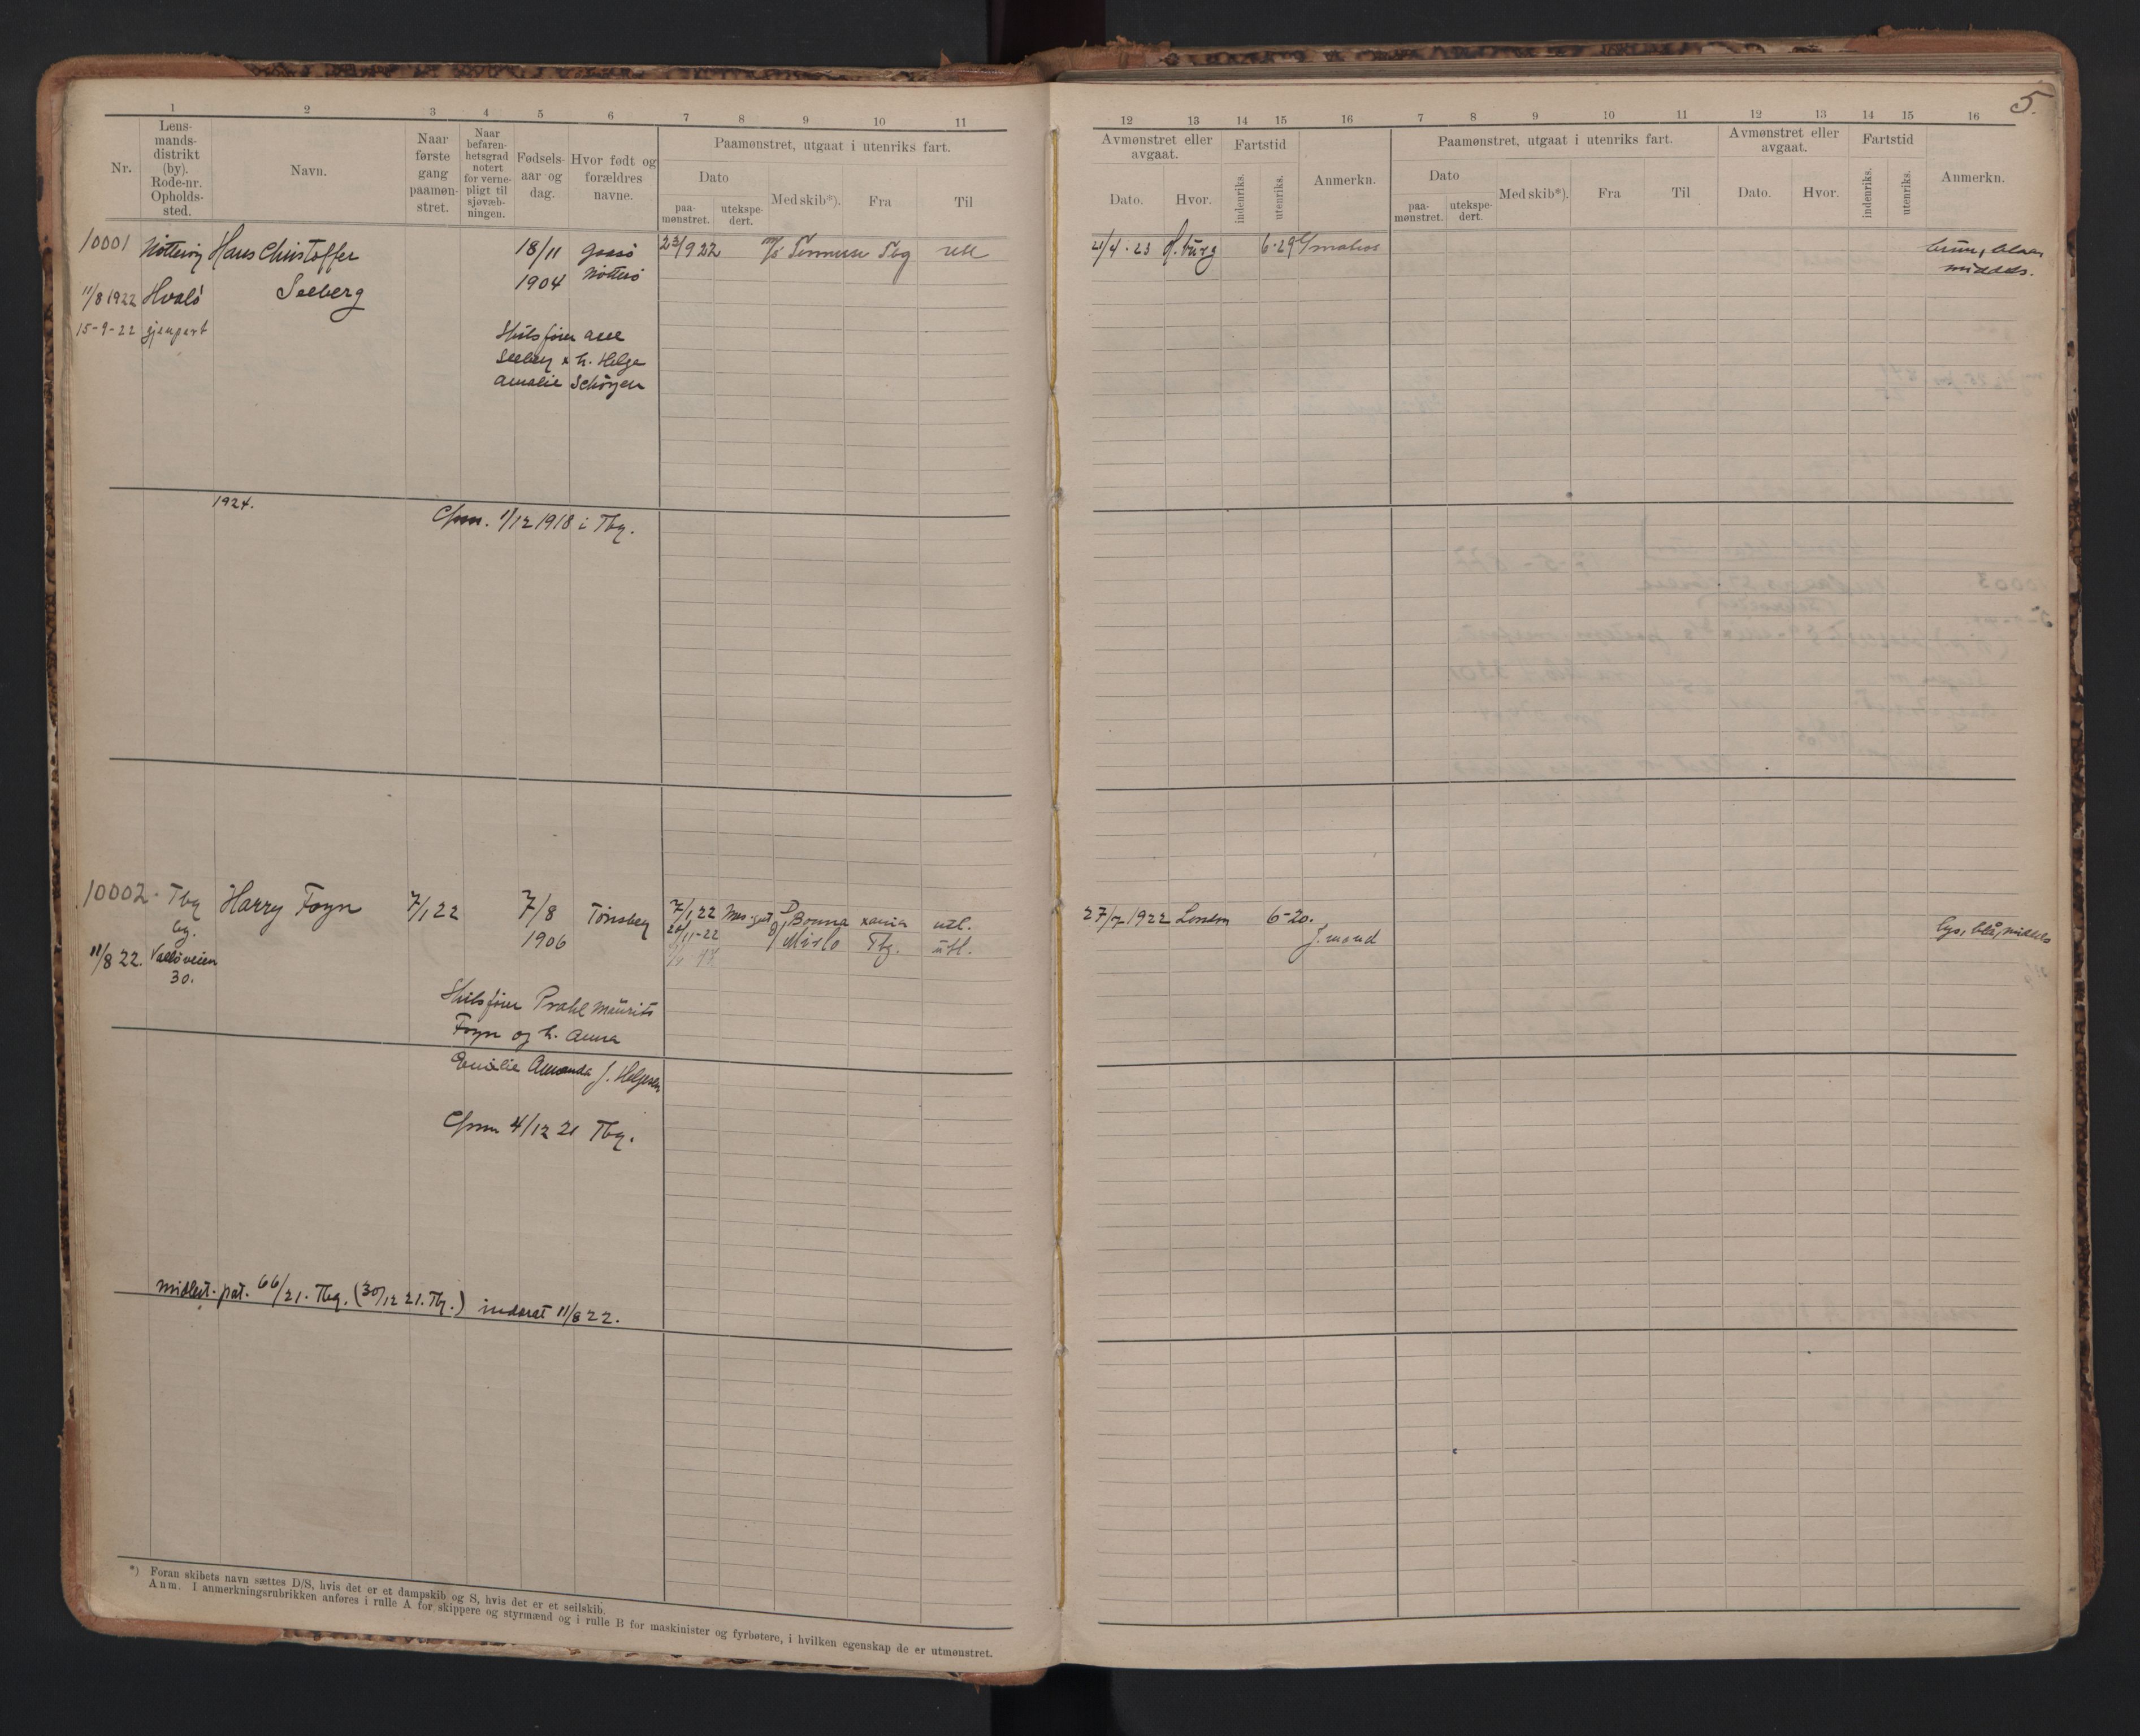 5.
1 2 3 4 5 6 7 8 9 10 11
Nr.
Lens-
mands-
distrikt
(by).
Rode-nr.
Opholds-
sted.
Navn.
Naar
første
gang
paamøn-
stret.
Naar
befaren-
hetsgrad
notert
for verne-
pligt til
sjøvæb-
ningen.
Fødsels-
aar og
dag.
Hvor født og
forældres
navne.
Paamønstret, utgaat i utenriks fart.
Dato
paa-
mønstret.
utekspe-
dert.
Med skib*).
Fra
Til
12 13 14 15 16 7 8 9 10 11 12 13 14 15 16
Avmønstret eller
avgaat.
Dato.
Hvor.
Fartstid
indenriks.
utenriks.
Anmerkn.
Paamønstret, utgaat i utenriks fart.
Dato
paa-
mønstret.
utekspe-
dert.
Med skib*).
Fra
Til
Avmønstret eller
avgaat.
Dato.
Hvor.
Fartstid
indenriks.
utenriks.
Anmerkn.
10001 Hans Christoffer 18/11 23/9 22 Tbg
11/8 1922 Hvalö Seeberg 1904 Nøtterö
15-9-22 gjenpart
Seeberg h. Helga
Amalie
21/4 . 23 H.burg 6-29
brun, blaa,
middels.
1924.
1/12 1918 i Tbg.
10002 Tbg Harry Foyn 7/1 22 7/8 Tönsberg 7/1 22 Bonna xania utl.
by. 1906 Mirlo Tbg. utl.
11/8 22. Vallöveien
30.
Prahl Maurits
Foyn og h. Anna
Emilie Amanda f. Helgesen
4/12 21 Tbg.
27/7 1922 London 6-20.
lys, blå, middels
midlert. pat. 66/21. Tbg. (30/12 21. Tbg.) inddrat 11/8 22.
*) Foran skibets navn sættes D/S, hvis det er et dampskib og S, hvis det er et seilskib.
Anm. I anmerkningsrubrikken anføres i rulle A for skippere og styrmænd og i rulle B for maskinister og fyrbøtere, i hvilken egenskap de er utmønstret.